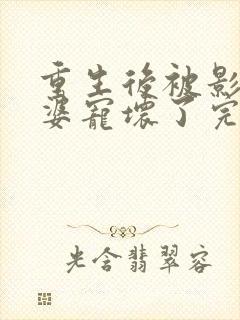 重生後被影
婆寵壞了完
光含翡翠容